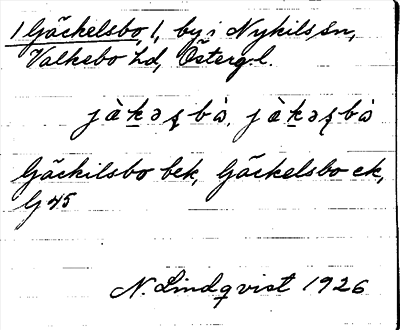 1 Gäckelsbo, 1, by i Nykils sn,
Valkebo hd, Östergl.
jàkəʂbò, jàkəʂbò
Gäckilsbo bek, Gäckelsbo ek,
G 45
N. Lindqvist 1926